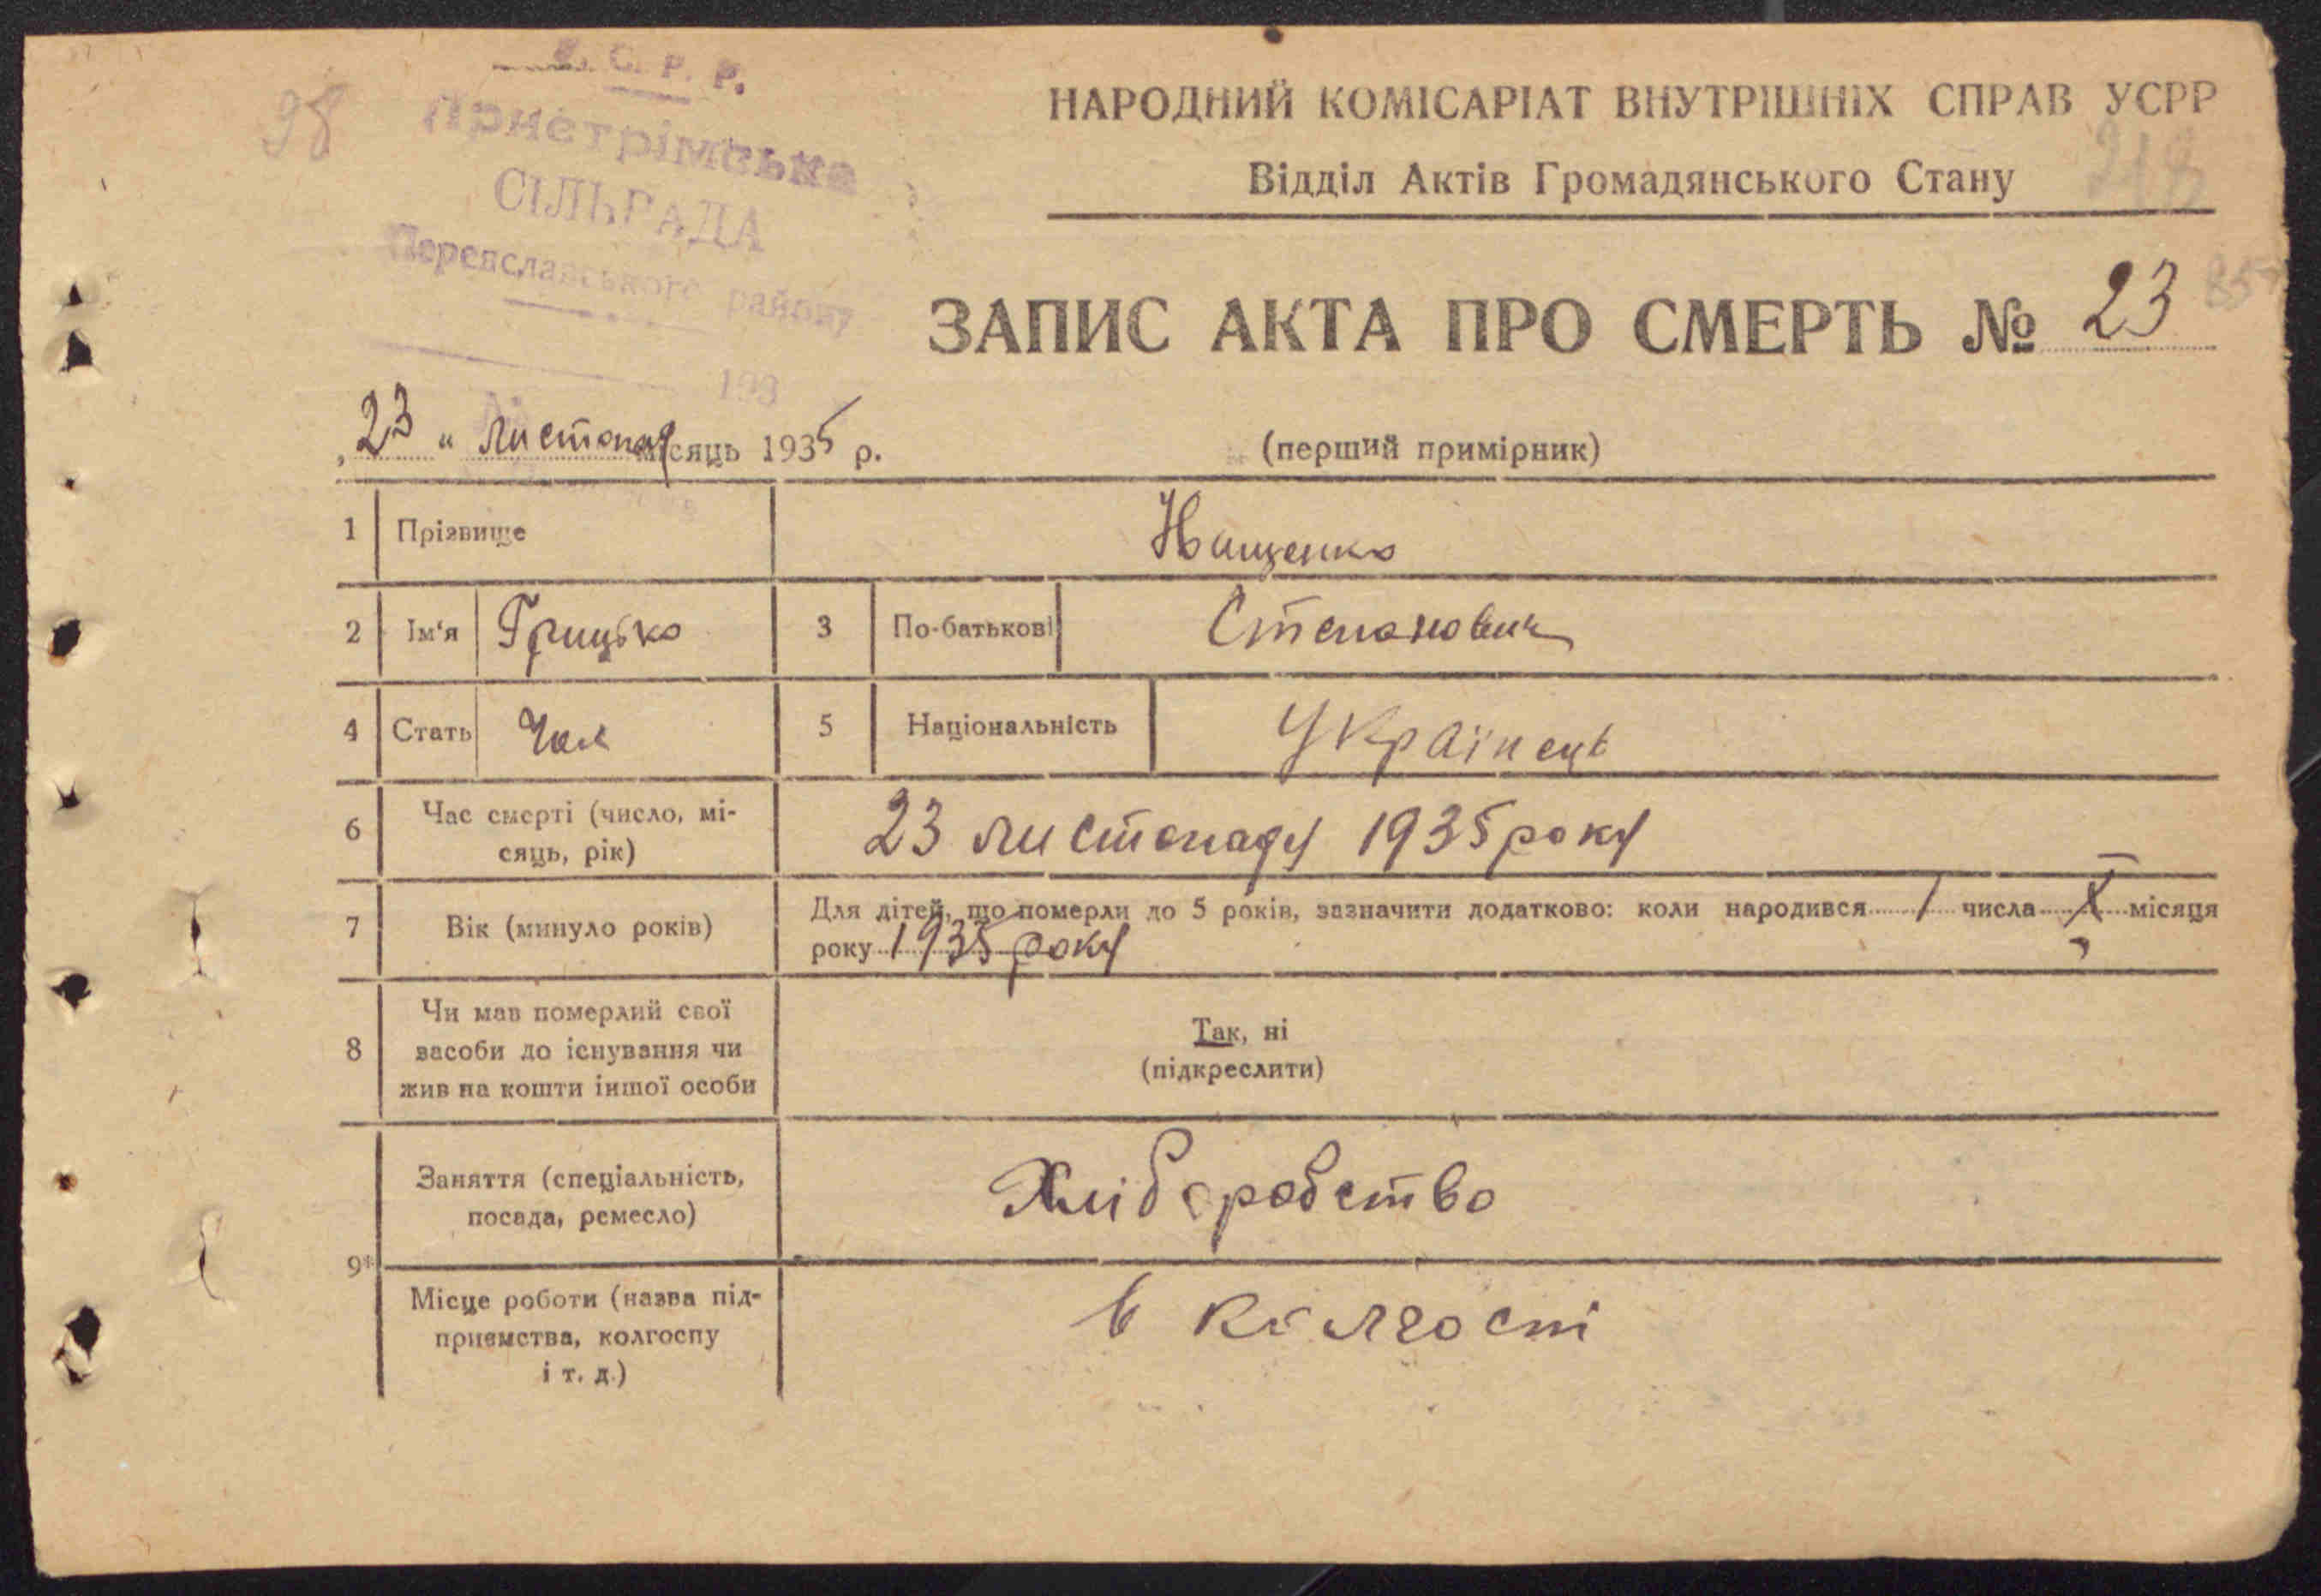 У. С. Р. Р.
98
Пристрімська
СІЛЬРАДА
Переяславського району
193
НАРОДНИЙ КОМІСАРІАТ ВНУТРІШНІХ СПРАВ УСРР
Відділ Актів Громадянського Стану
ЗАПИС АКТА ПРО СМЕРТЬ № 23
„23“ листопад місяць 1935 р.
(перший примірник)
1 Прізвище Нищенко
2 Ім'я Грицько 3 По-батькові Степанович
4 Стать Чол 5 Національність Українець
6 Час смерті (число, мі-
сяць, рік) 23 листопаду 1935 року
7 Вік (минуло років) Для дітей, що померли до 5 років, зазначити додатково: коли народився 1 числа X місяця
року 1935 року
8 Чи мав померлий свої
засоби до існування чи
жив на кошти іншої особи
Так, ні
(підкреслити)
9* Заняття (спеціальність,
посада, ремесло) Хліборобство
Місце роботи (назва під-
приємства, колгоспу
і т. д.) в колгоспі